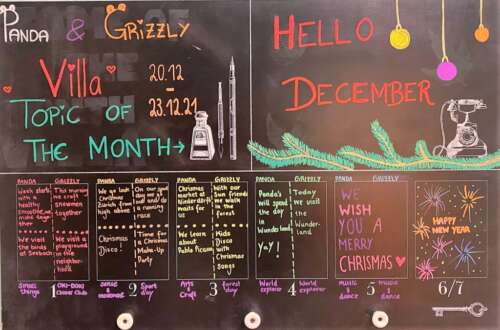 Panda & Grizzly
Villa
20.12
-
23.12.21
Topic of
the Month →
Hello
December
PANDA GRIZZLY
Week starts
with a
healthy
smoothie, we
make together
This morning
we craft
snowmen
together
We visit
the birds
at Seebach
We visit a
playground
in the
neighbor-
hood
PANDA GRIZZLY
We look
Christmas
Zürich from
high above
On our sport
day we go
out and do
a running
race
Christmas
Disco!
Time for a
Christmas
Make-Up
Party
PANDA GRIZZLY
Christmas
market at
Niederdorf
waits for
us
With our
Sun friends
we walk in
the forest
We learn
about
Pablo Picasso
Kids
Disco
with
Christmas
Songs
PANDA GRIZZLY
Panda's
will spend
the day
at
Wunderland
Yay!
Today
we visit
the
Wunder-
land
PANDA GRIZZLY
WE
WISH
YOU A
MERRY
CHRISMAS
HAPPY
NEW YEAR
Small
things
1
Oki-Doki
Chinese Club
Sense &
2
Sport
day
Arts &
Craft
3
Forest
day
World
explorer
4
World
explorer
Music
&
dance
5
Music
&
dance
6/7